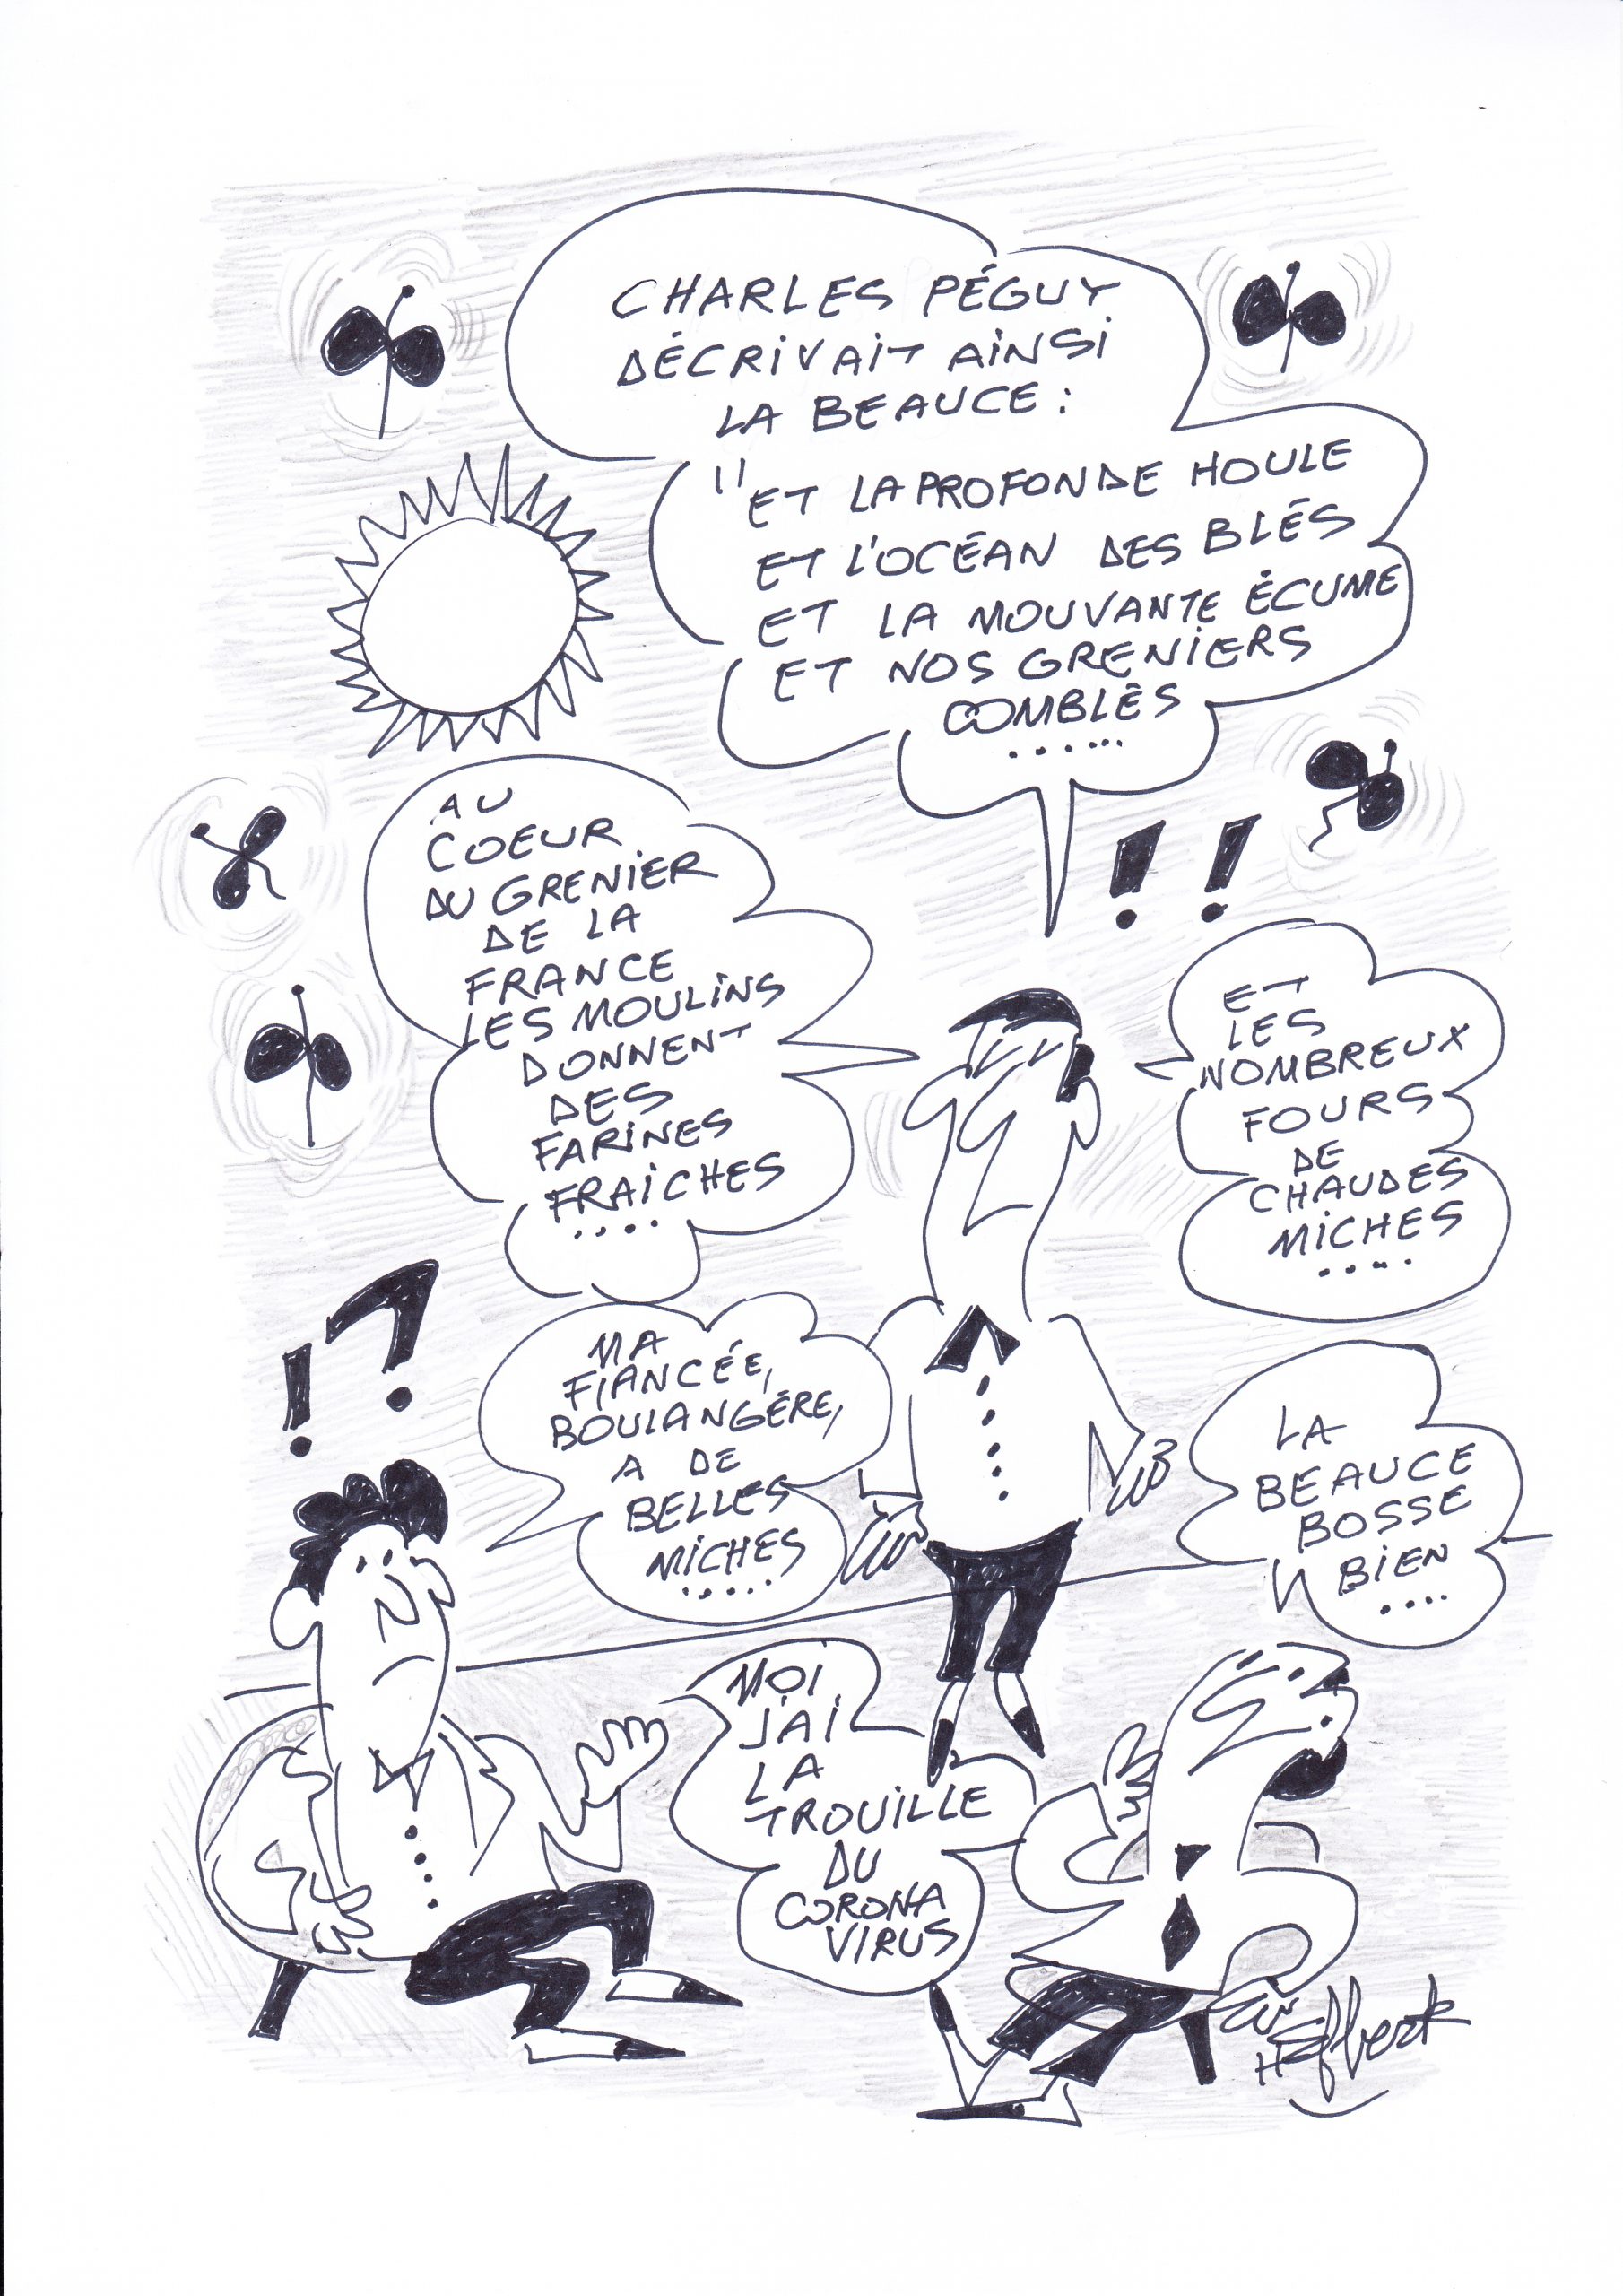 CHARLES PÉGUY
DÉCRIVAIT AINSI
LA BEAUCE :
"ET LA PROFONDE HOULE
ET L'OCÉAN DES BLÉS
ET LA MOUVANTE ÉCUME
ET NOS GRENIERS
COMBLÉS
......
AU
COEUR
DU GRENIER
DE LA
FRANCE
LES MOULINS
DONNENT
DES
FARINES
FRAICHES
....
ET
LES
NOMBREUX
FOURS
DE
CHAUDES
MICHES
....
!!
!?
MA
FIANCÉE,
BOULANGÉRE,
A DE
BELLES
MICHES
.....
LA
BEAUCE
BOSSE
BIEN
....
MOI
J'AI
LA
TROUILLE
DU
CORONA
VIRUS